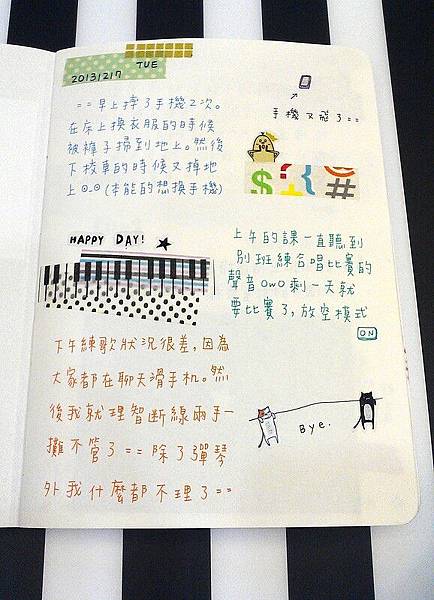 20131217 TUE
== 早上摔了手機2次。
在床上換衣服的時候
被褲子掃到地上。然後
下校車的時候又掉地
上⊙.⊙(本能的想換手機)
手機又飛了==
$ ? ! { #
HAPPY DAY!
上午的課一直聽到
別班練合唱比賽的
聲音OwO剩一天就
要比賽了,放空模式
ON
下午練歌狀況很差,因為
大家都在聊天滑手机。然
後我就理智斷線兩手一
攤不管了==除了彈琴
外我什麼都不理了==
BYE.